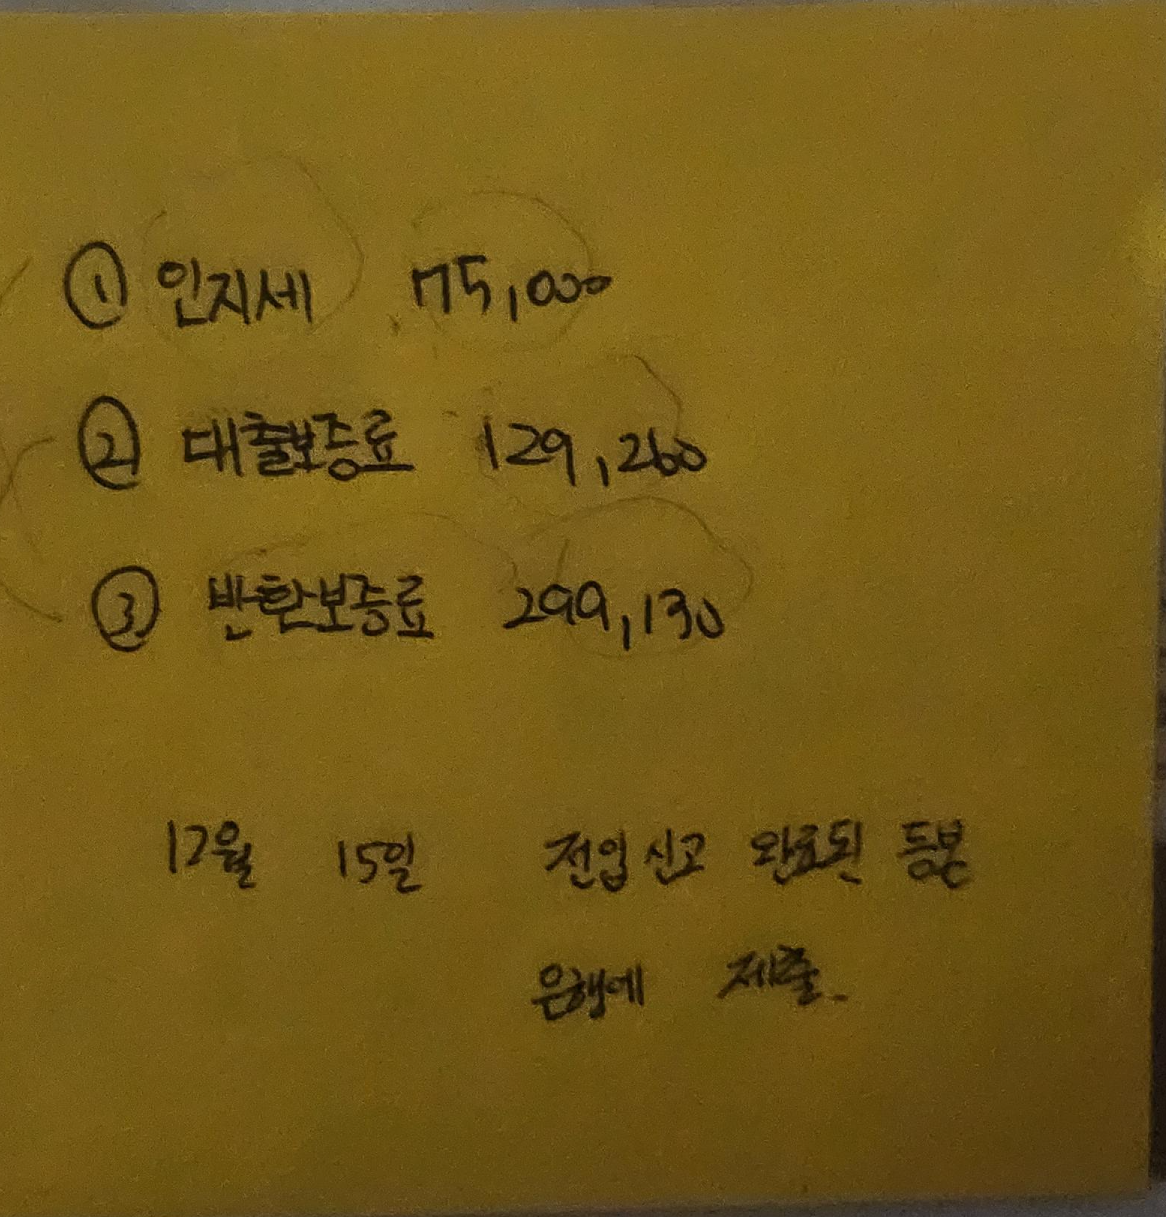 ① 인지세 75,000
② 대출보증료 129,260
③ 반환보증료 299,130
12월 15일 전입신고 완료된 등본
은행에 제출.